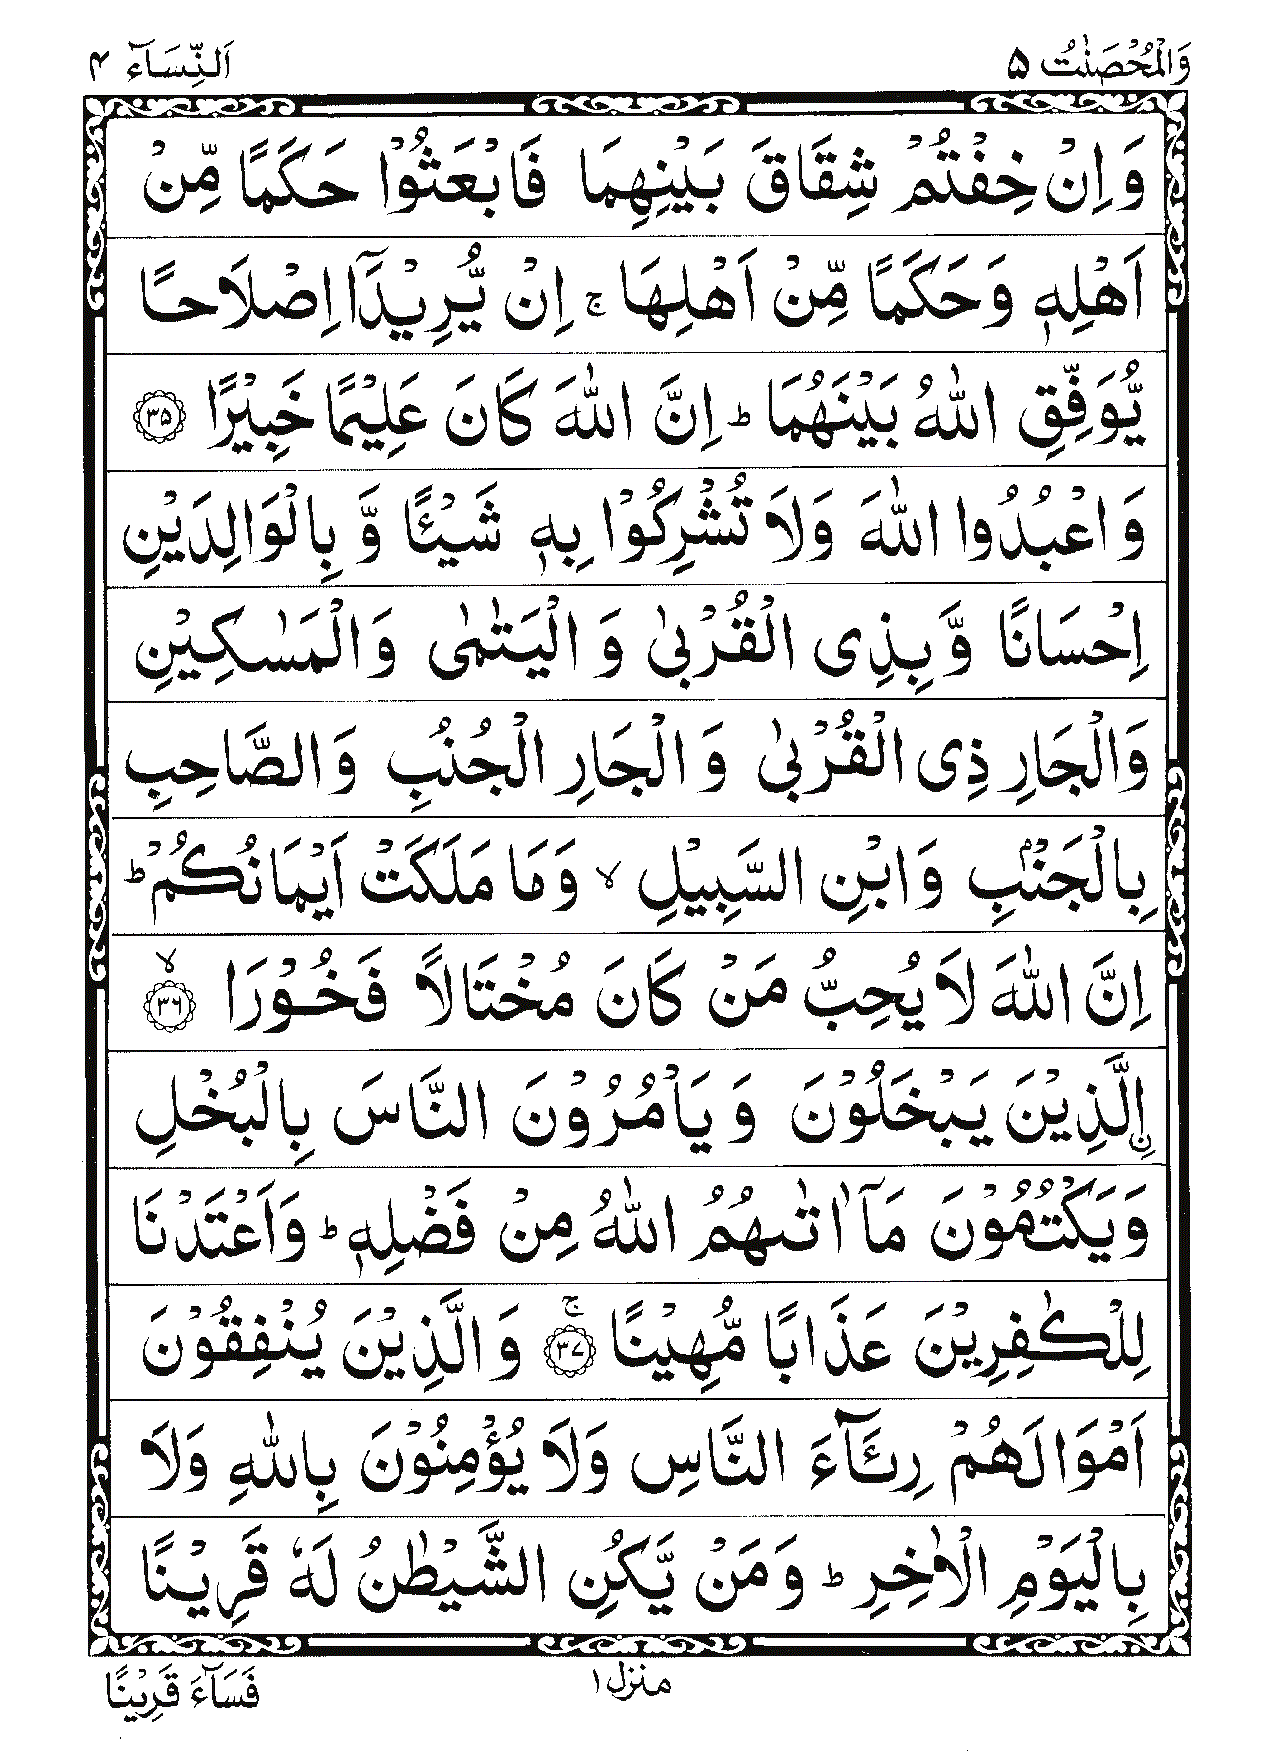 وَالْمُحْصَنٰتُ ۵
اَلنِّسَآء ۴
وَ اِنْ خِفْتُمْ شِقَاقَ بَيْنِهِمَا فَابْعَثُوْا حَكَمًا مِّنْ
اَهْلِهٖ وَحَكَمًا مِّنْ اَهْلِهَا ۚ اِنْ يُّرِيْدَاۤ اِصْلَاحًا
يُّوَفِّقِ اللّٰهُ بَيْنَهُمَا ؕ اِنَّ اللّٰهَ كَانَ عَلِيْمًا خَبِيْرًا ﴿۳۵﴾
وَ اعْبُدُوا اللّٰهَ وَلَا تُشْرِكُوْا بِهٖ شَيْئًا وَّ بِالْوَالِدَيْنِ
اِحْسَانًا وَّ بِذِى الْقُرْبٰى وَ الْيَتٰمٰى وَ الْمَسٰكِيْنِ
وَالْجَارِ ذِى الْقُرْبٰى وَ الْجَارِ الْجُنُبِ وَ الصَّاحِبِ
بِالْجَنْۢبِ وَ ابْنِ السَّبِيْلِ ۙ وَمَا مَلَكَتْ اَيْمَانُكُمْ ؕ
اِنَّ اللّٰهَ لَا يُحِبُّ مَنْ كَانَ مُخْتَالًا فَخُوْرَا ﴿۳۶﴾ ۙ
اۨلَّذِيْنَ يَبْخَلُوْنَ وَ يَاْمُرُوْنَ النَّاسَ بِالْبُخْلِ
وَيَكْتُمُوْنَ مَاۤ اٰتٰٮهُمُ اللّٰهُ مِنْ فَضْلِهٖ ؕ وَاَعْتَدْنَا
لِلْكٰفِرِيْنَ عَذَابًا مُّهِيْنًا ﴿۳۷﴾ ۚ وَ الَّذِيْنَ يُنْفِقُوْنَ
اَمْوَالَهُمْ رِئَآءَ النَّاسِ وَلَا يُؤْمِنُوْنَ بِاللّٰهِ وَلَا
بِالْيَوْمِ الْاٰخِرِ ؕ وَمَنْ يَّكُنِ الشَّيْطٰنُ لَهٗ قَرِيْنًا
منزل ۱
فَسَآءَ قَرِيْنًا